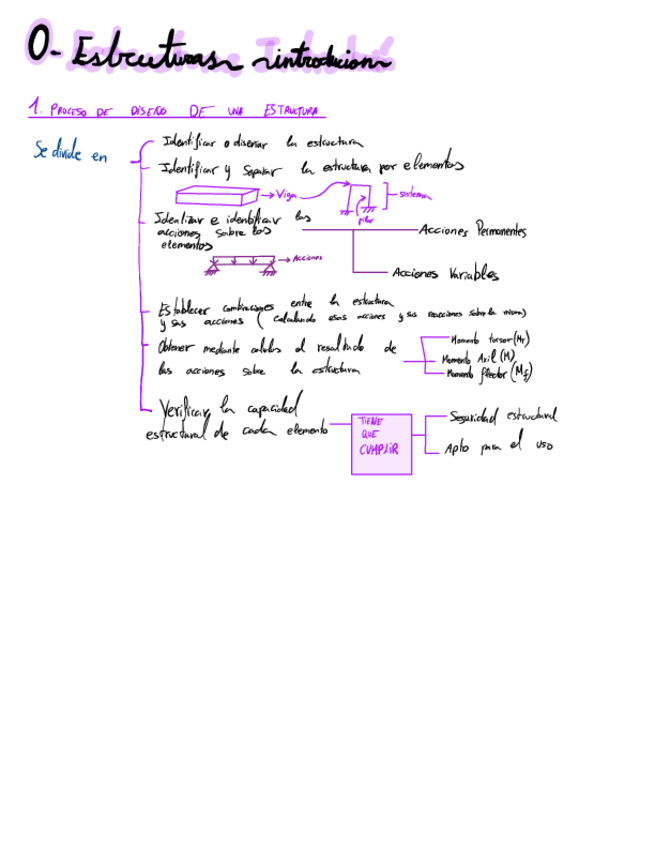 0- Estructuras introducion
1. PROCESO DE DISEÑO DE UNA ESTRUCTURA
Se divide en
Identificar o diseñar la estructura
Identificar y separar la estructura por elementos
Viga
sistema
pilar
Idealizar e identificar las
acciones sobre los
elementos
Acciones Permanentes
Acciones Variables
Acciones
Establecer combinaciones entre la estructura
y sus acciones (calculando esas acciones y sus reacciones sobre la misma)
Obtener mediante calculos el resultado de
las acciones sobre la estructura
Momento torsor (MT)
Momento Axil (N)
Momento flector (Mf)
Verificar la capacidad
estructural de cada elemento
TIENE
QUE
CUMPLIR
Seguridad estructural
Apto para el uso